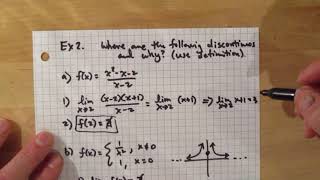 Ex 2. Where are the following discontinuous
and why? (use definition)
a) f(x) = x²-x-2 / x-2
1) lim x→2 (x-2)(x+1) / x-2 = lim x→2 (x+1) => lim x→2 x+1 = 3
2) f(2) = ∄
b) f(x) = { 1/x², x ≠ 0
1, x = 0